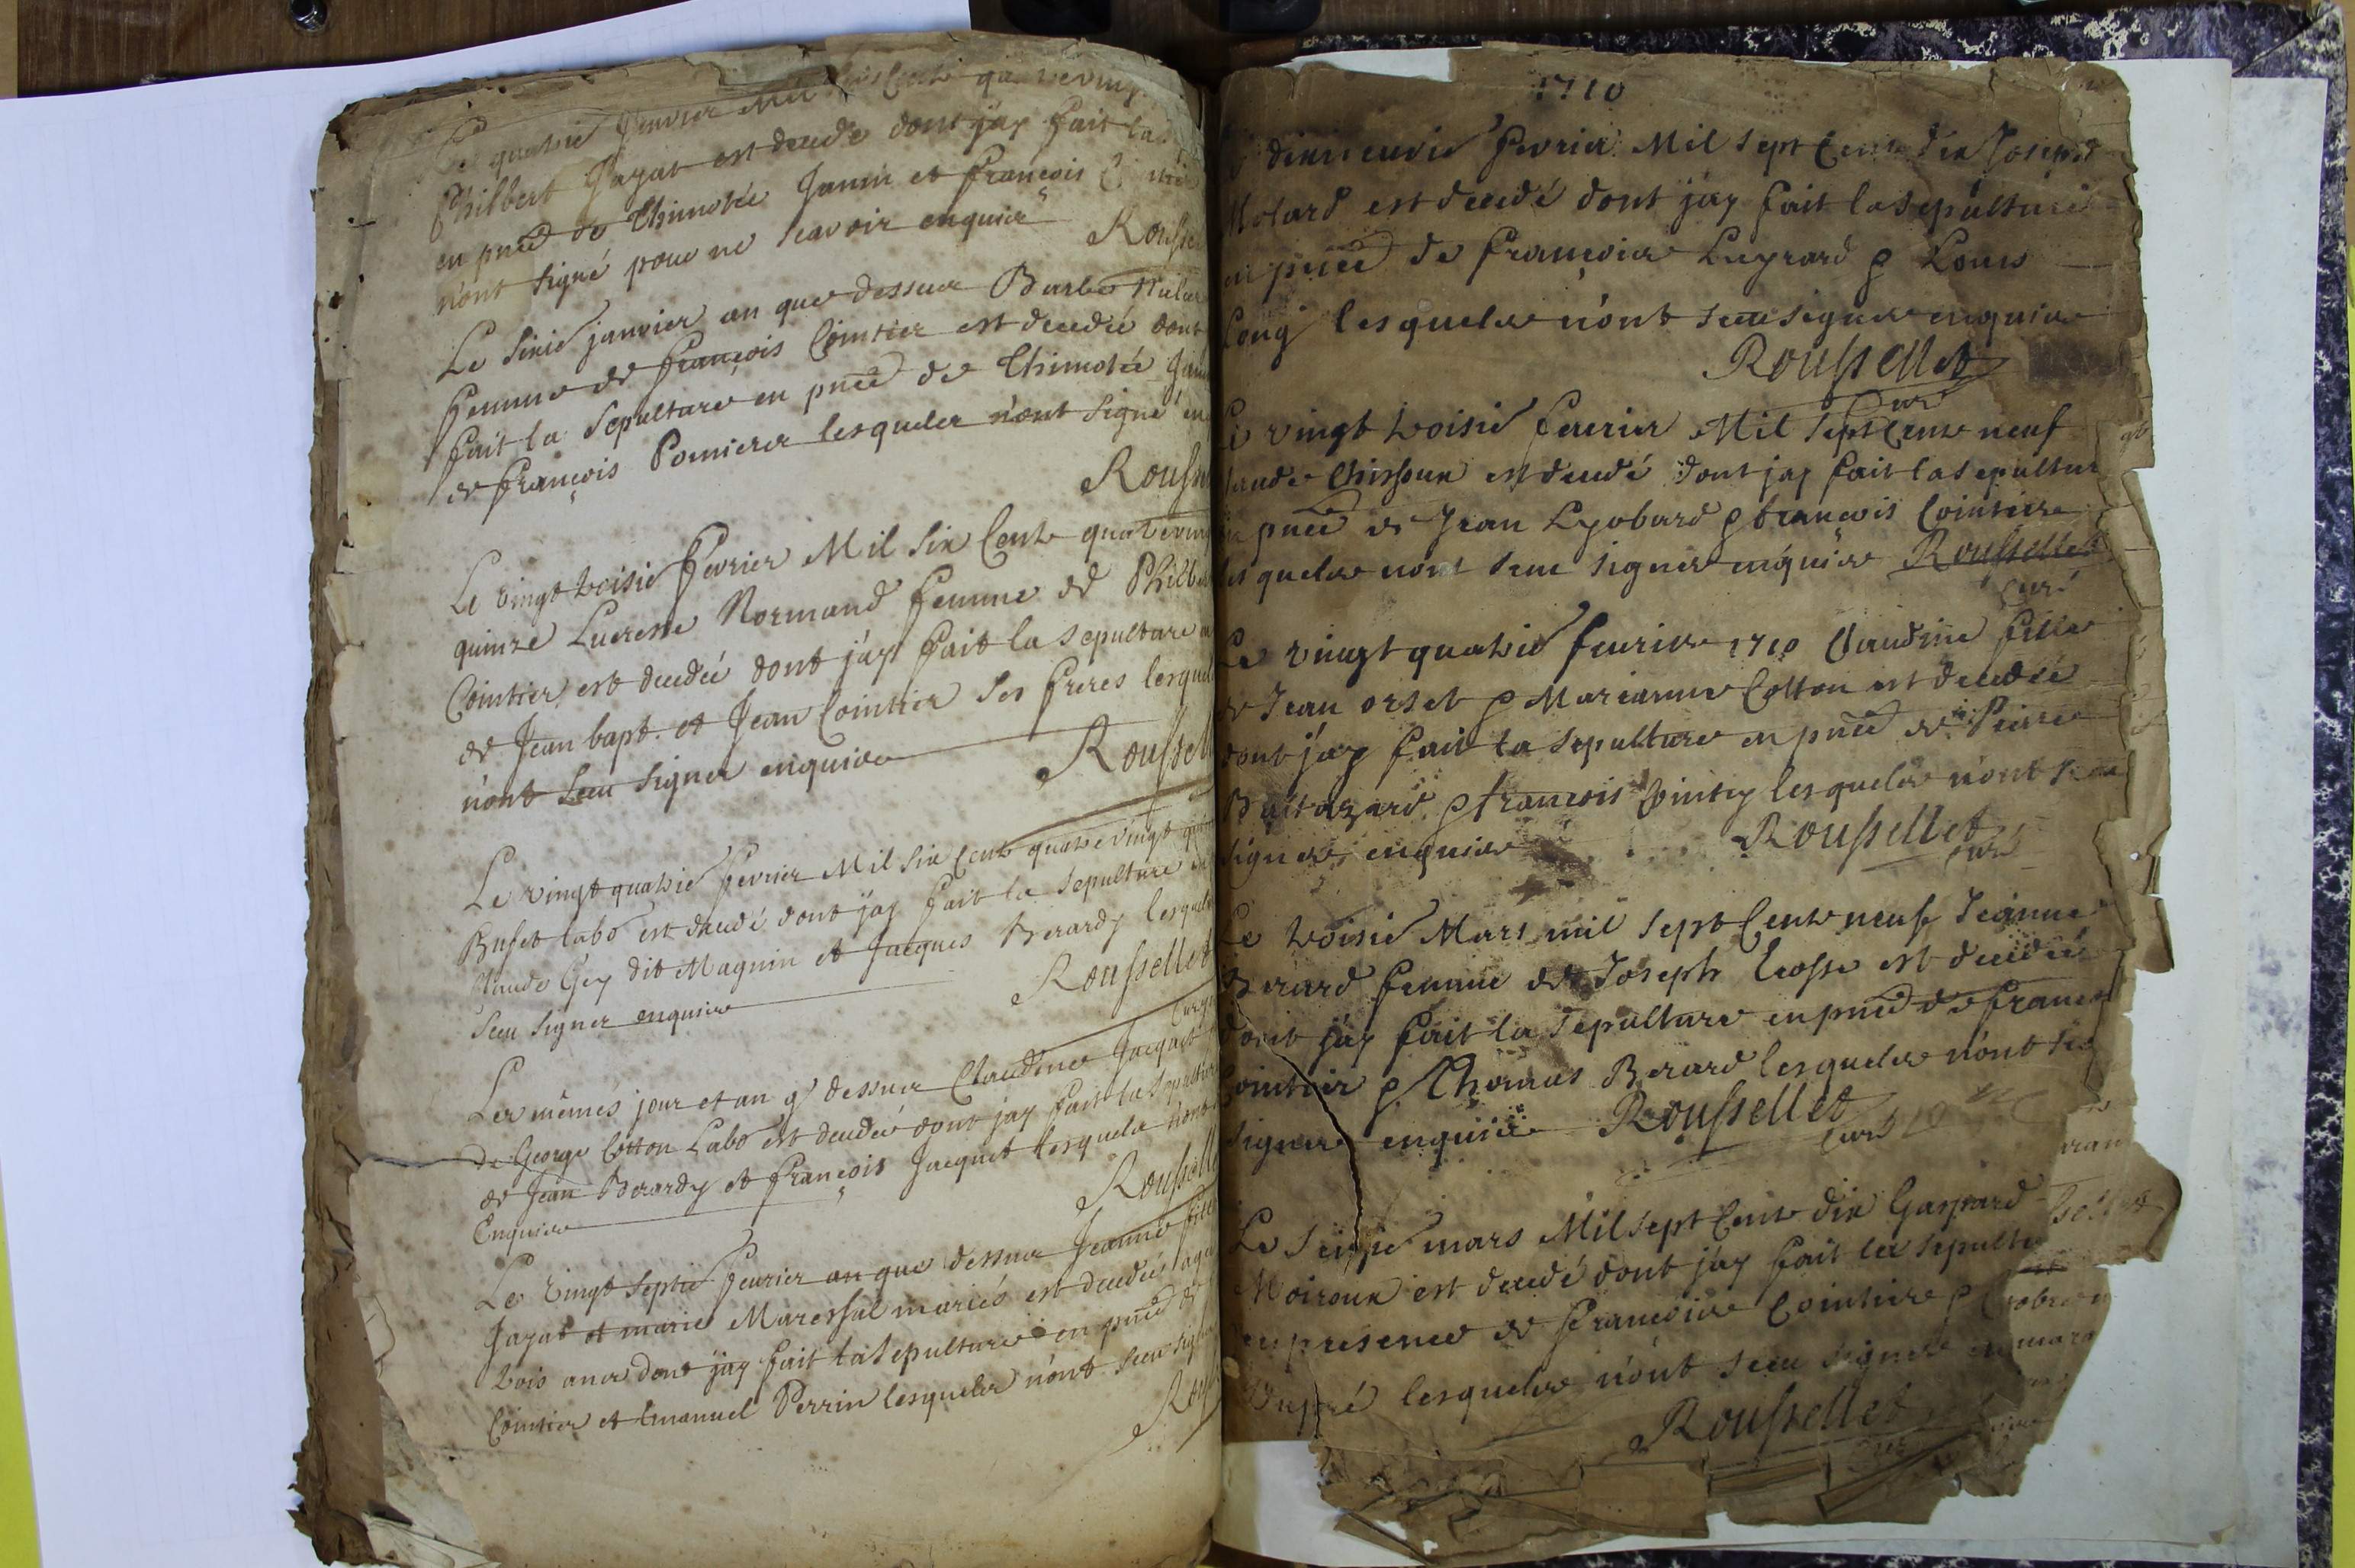 Le quatrie Janvier Mil six Cents quatreving
Philbert Jayat est decedé dont j'ay fait la
en pnce de Thimotée Janin et François
n'ont signé pour ne scavoir enquis
Rousse
Le sixie janvier an que dessus Barbe
femme de François Cointier est decedée dont
fait la sepulture en pnce de Thimotée Jani
et François Pomieres lesquels n'ont signé en
Rousse
Le vingt troisie fevrier Mil six Cents quatreving
quinze Lucresse Normand femme de Philbe
Cointier est decedée dont j'ay fait la sepulture
de Jean bapt. et Jean Cointier ses freres lesquel
n'ont sceu signer enquis
Roussel
Le vingt quatrie fevrier Mil six Cents quatrevingt
Buset labo est decedé dont j'ay fait la sepulture
Claude Gey dit Magnin et Jacques Berardy lesquels
sceu signer enquis
Roussellet
Curé
Les mêmes jour et an q dessus Claudine Jacquet
de George Cotton Labo est decedée dont j'ay fait la sepulture
de Jean Berardy et François Jacquet lesquels n'ont
Enquis
Rousselle
Le vingt septie feurier an que dessus Jeanne fille
Jayat et marie Mareschal mariés est decedée agée
trois ans dont j'ay fait la sepulture en pnce de
Cointier et Emanuel Perrin lesquels n'ont sceu sign
Rou
1710
dixneuvie fevrier Mil sept Cents dix Joseph
Molard est decedé dont j'ay fait la sepulture
en pnce de François Luyrard e Louis
Long lesquels n'ont sceu signer enquis
Roussellet
Curé
Le vingt troisie feurier Mil sept Cents neuf
laude Chissoux est decedé dont j'ay fait la sepultur
en pnce de Jean Lyobard e francois Cointier
les quels n'ont sceu signer enquis Roussellet
Curé
Le vingt quatrie feurier 1710 Claudine fille
de Jean orset e Marianne Cotton est decedée
dont j'ay fait la sepulture en pnce de Pierre
Baltazard e francois Cointy lesquels n'ont sceu
signer enquis Roussellet
Curé
Le troisie Mars mil sept Cents neuf Jeanne
Berard femme de Joseph Crosse est decedée
dont j'ay fait la sepulture en pnce de franco
Cointier e Thomas Berard lesquels n'ont sce
signer enquis Roussellet
Curé
Le seizie mars Mil sept Cents dix Gaspard
Moiroux est decedé dont j'ay fait la sepultu
en presence de François Cointier e
Dupré lesquels n'ont sceu signer
Roussellet
Curé